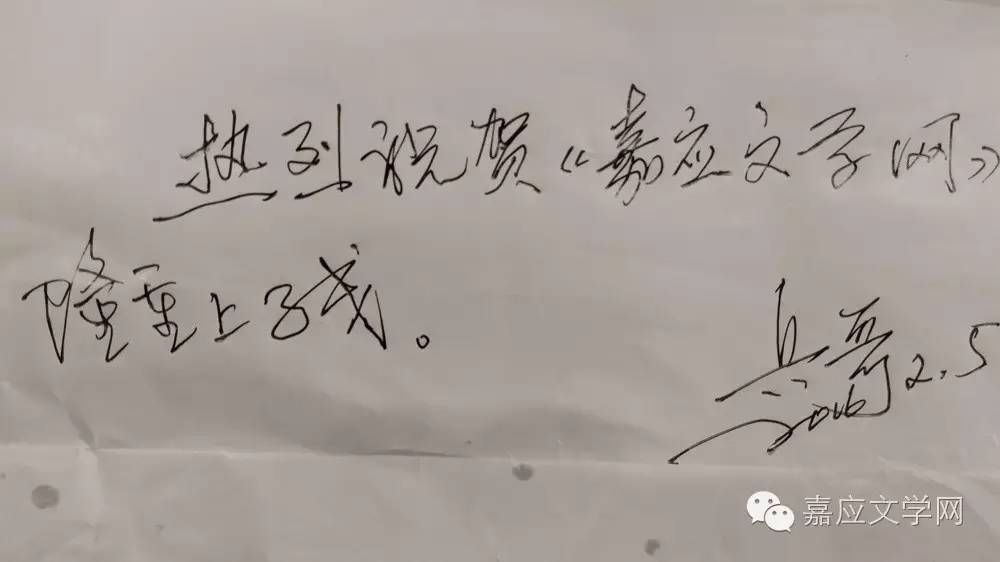 热烈祝贺《嘉应文学网》
隆重上线。
兵哥
2016 2.5
嘉应文学网